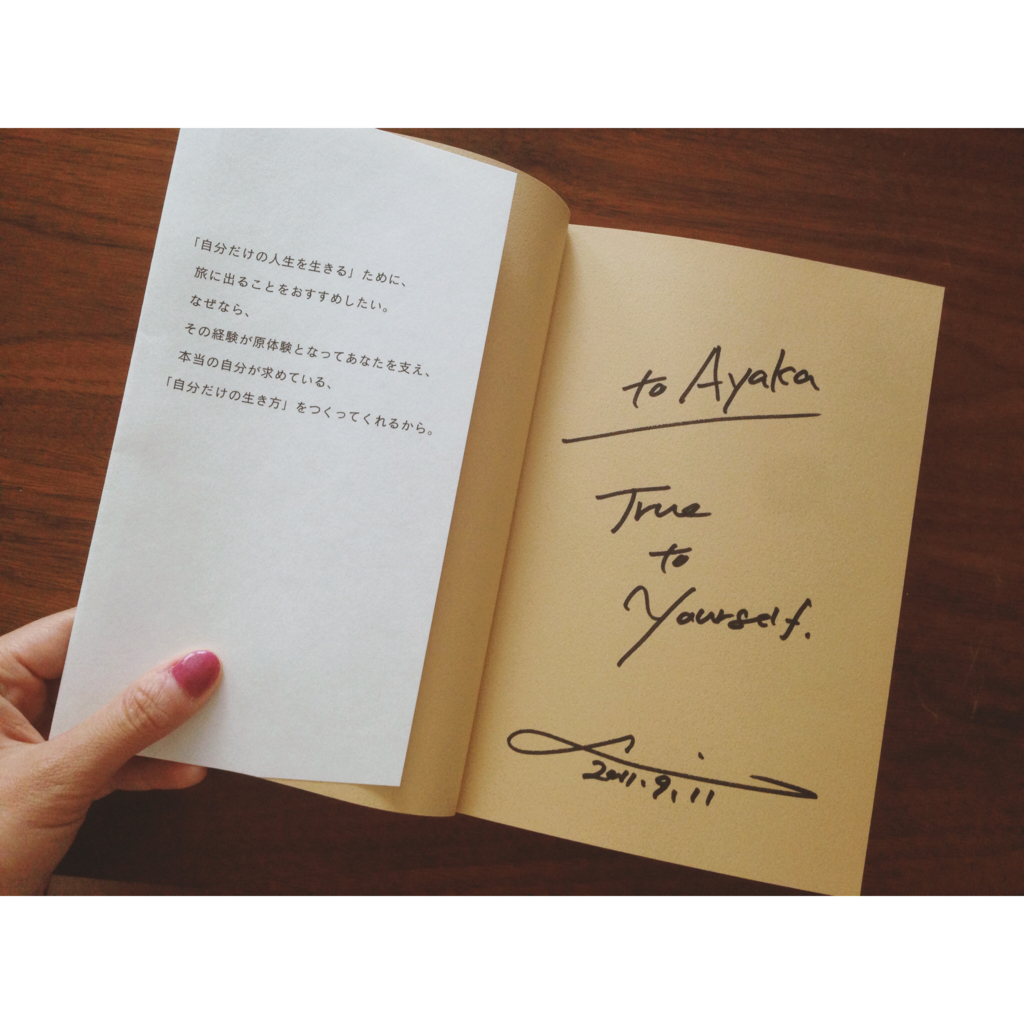 「自分だけの人生を生きる」ために、
旅に出ることをおすすめしたい。
なぜなら、
その経験が原体験となってあなたを支え、
本当の自分が求めている、
「自分だけの生き方」をつくってくれるから。
to Ayaka
True
to
Yourself.
2011.9.11